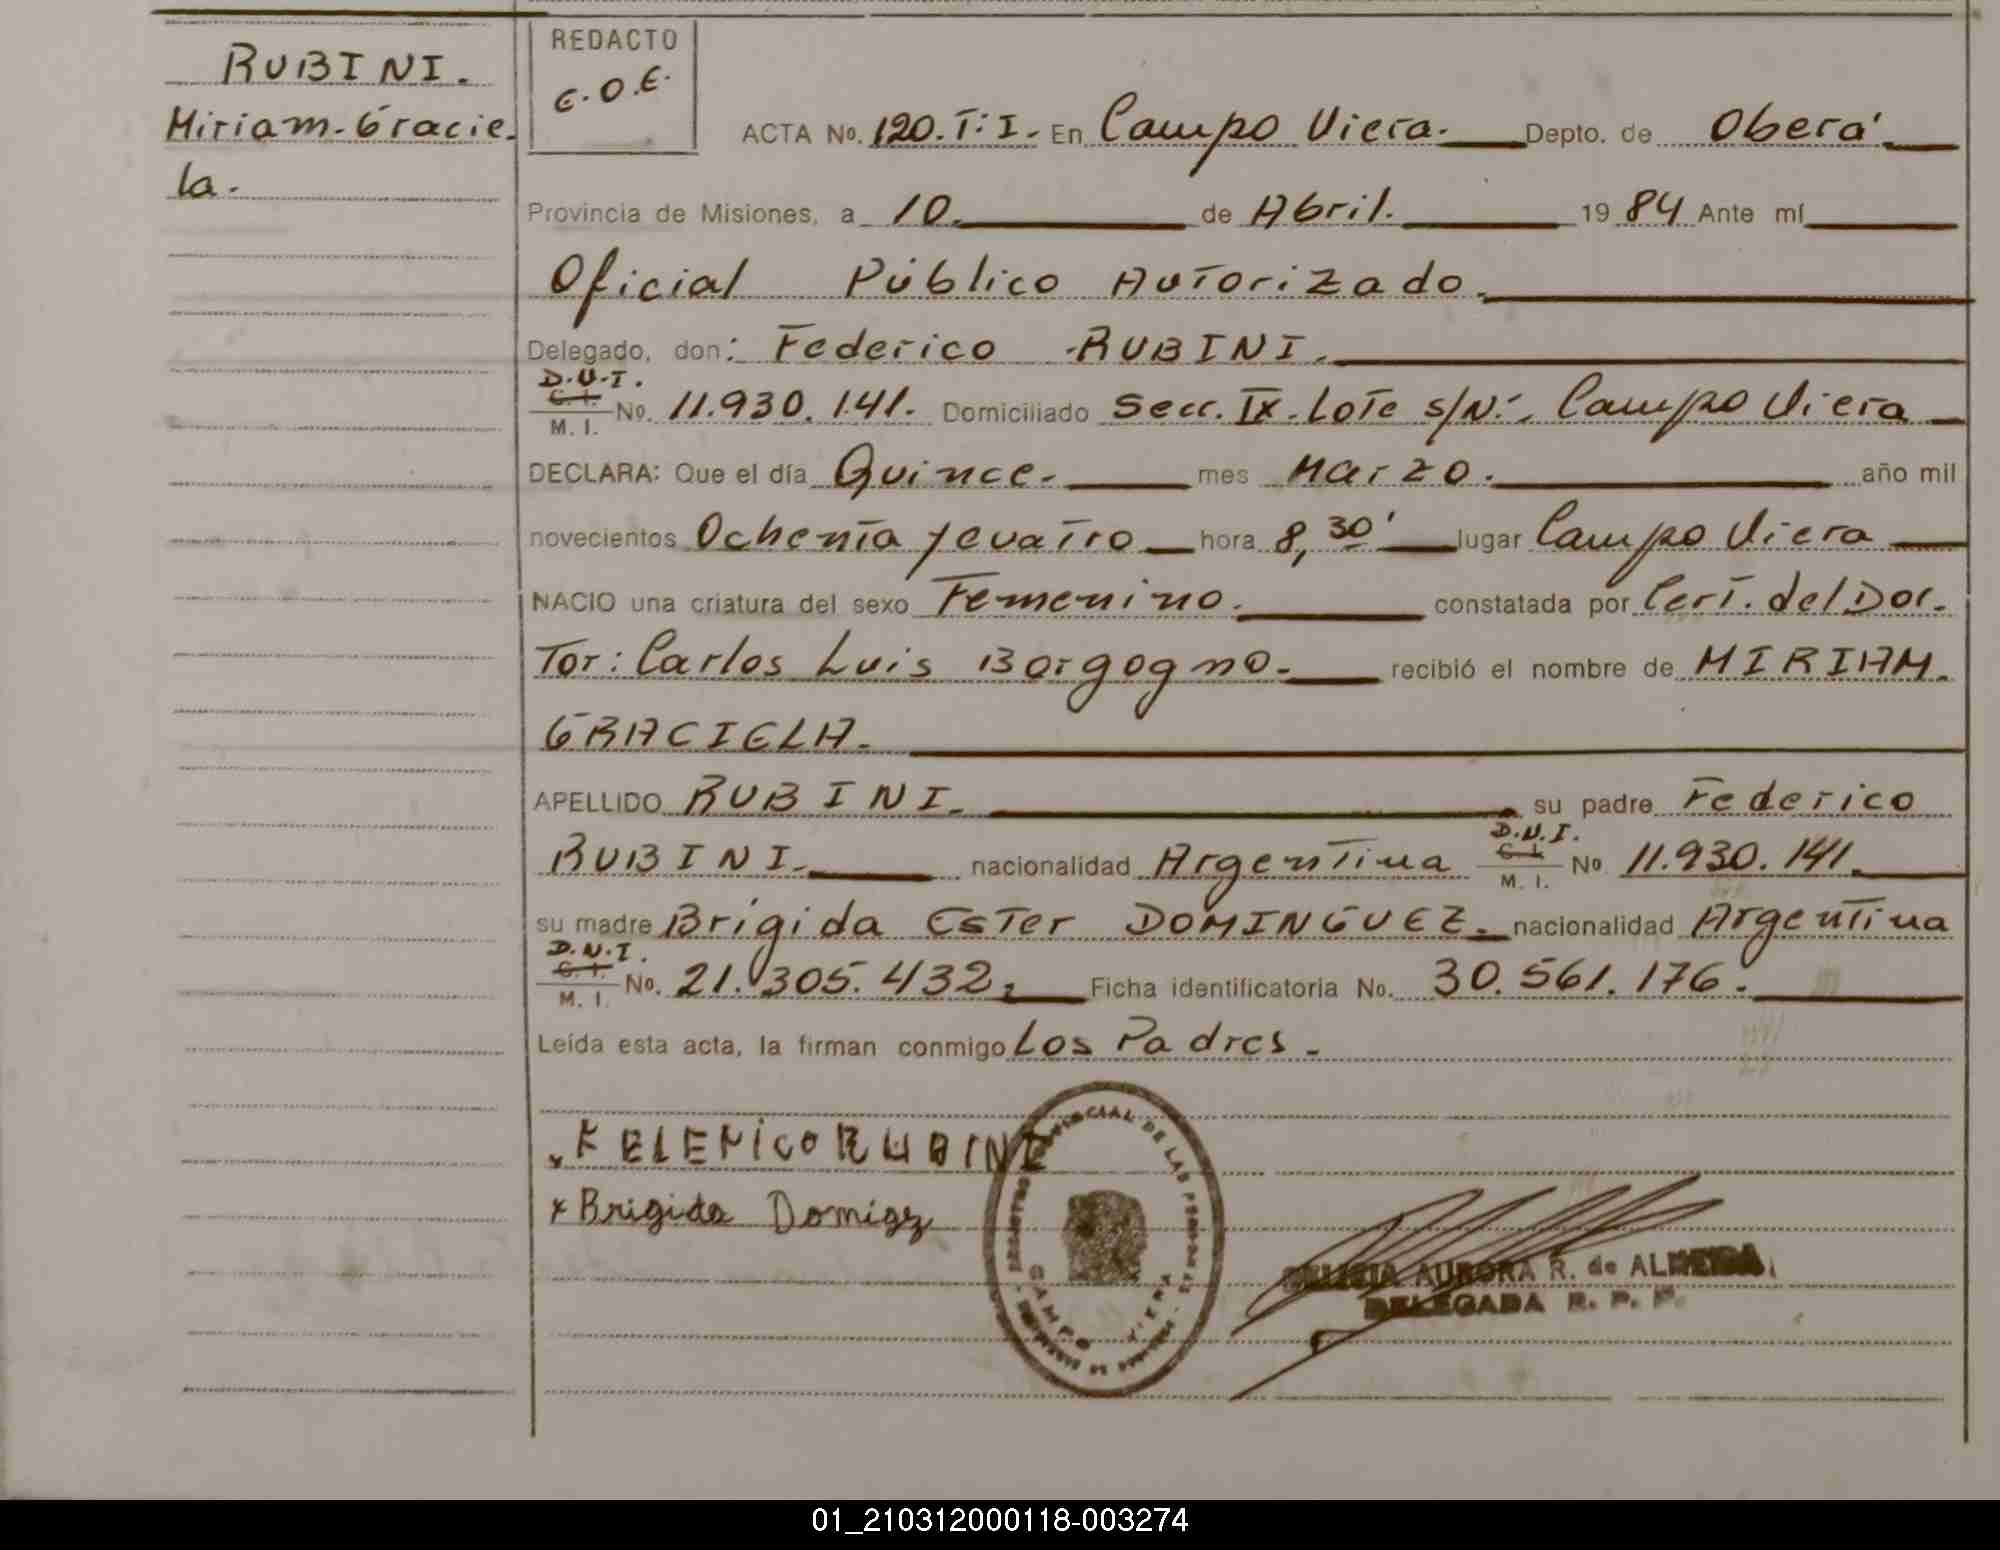 RUBINI.
Miriam-Gracie-
la.
REDACTO
E.O.E.
ACTA No. 120.T:I. En Campo Viera. Depto. de Oberá
Provincia de Misiones, a 10. de Abril. 19 84 Ante mí
Oficial Público Autorizado.
Delegado, don: Federico RUBINI.
D.N.I.
C. I. No. 11.930.141. Domiciliado Secc. IX. Lote s/Nº, Campo Viera
M. I.
DECLARA: Que el día Quince. mes Marzo. año mil
novecientos Ochenta y cuatro hora 8,30' lugar Campo Viera
NACIO una criatura del sexo Femenino. constatada por Cert. del Doc.
Tor: Carlos Luis Borgogno. recibió el nombre de MIRIAM.
GRACIELA.
APELLIDO RUBINI. su padre Federico
D.N.I.
RUBINI. nacionalidad Argentina C. I. No 11.930.141.
M. I.
su madre Brigida Ester DOMINGUEZ. nacionalidad Argentina
D.N.I.
C. I. No. 21.305.432. Ficha identificatoria No. 30.561.176.
M. I.
Leída esta acta, la firman conmigo Los Padres.
x FELERICO RUBINI
x Brigida Domigz
REGISTRO PROVINCIAL DE LAS PERSONAS
CAMPO VIERA
AURORA R. de ALMEIDA
DELEGADA R. P. P.
01_210312000118-003274